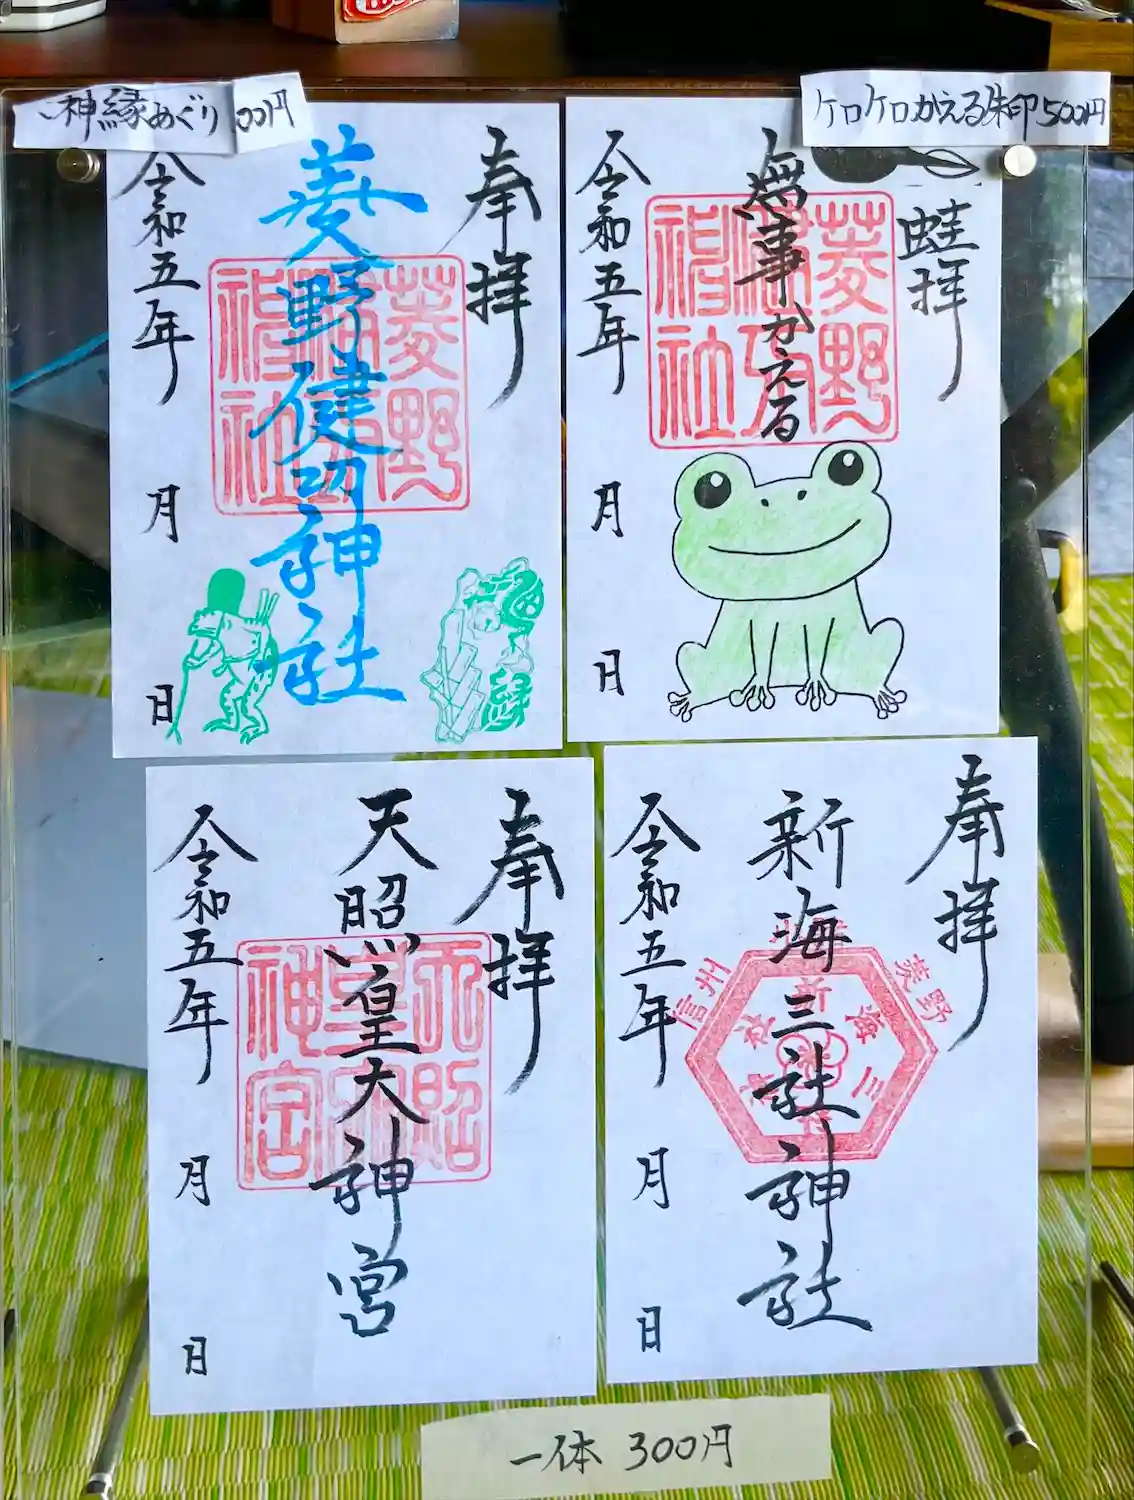 神縁めぐり 00円
ケロケロかえる朱印500円
奉拝
菱野健功神社
令和五年
月
日
縁
蛙拝
無事かえる
令和五年
月
日
菱野
健功
神社
奉拝
天照皇大神宮
令和五年
月
日
奉拝
新海三社神社
令和五年
月
日
信州
菱野
一体 300円